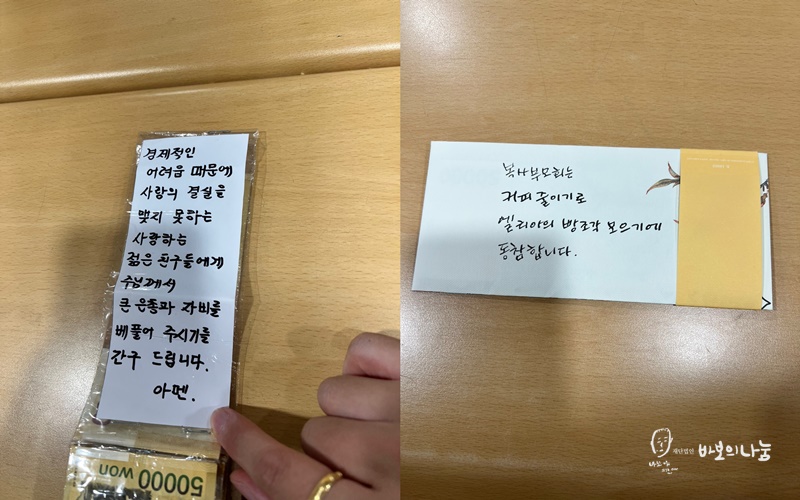 경제적인
어려움 때문에
사랑의 결실을
맺지 못하는
사랑하는
젊은 친구들에게
주님께서
큰 은총과 자비를
베풀어 주시기를
간구 드립니다.
아멘.
50000 won
복사부모회는
커피 줄이기로
엘리아의 빵조각 모으기에
동참합니다.
재단법인 바보의나눔